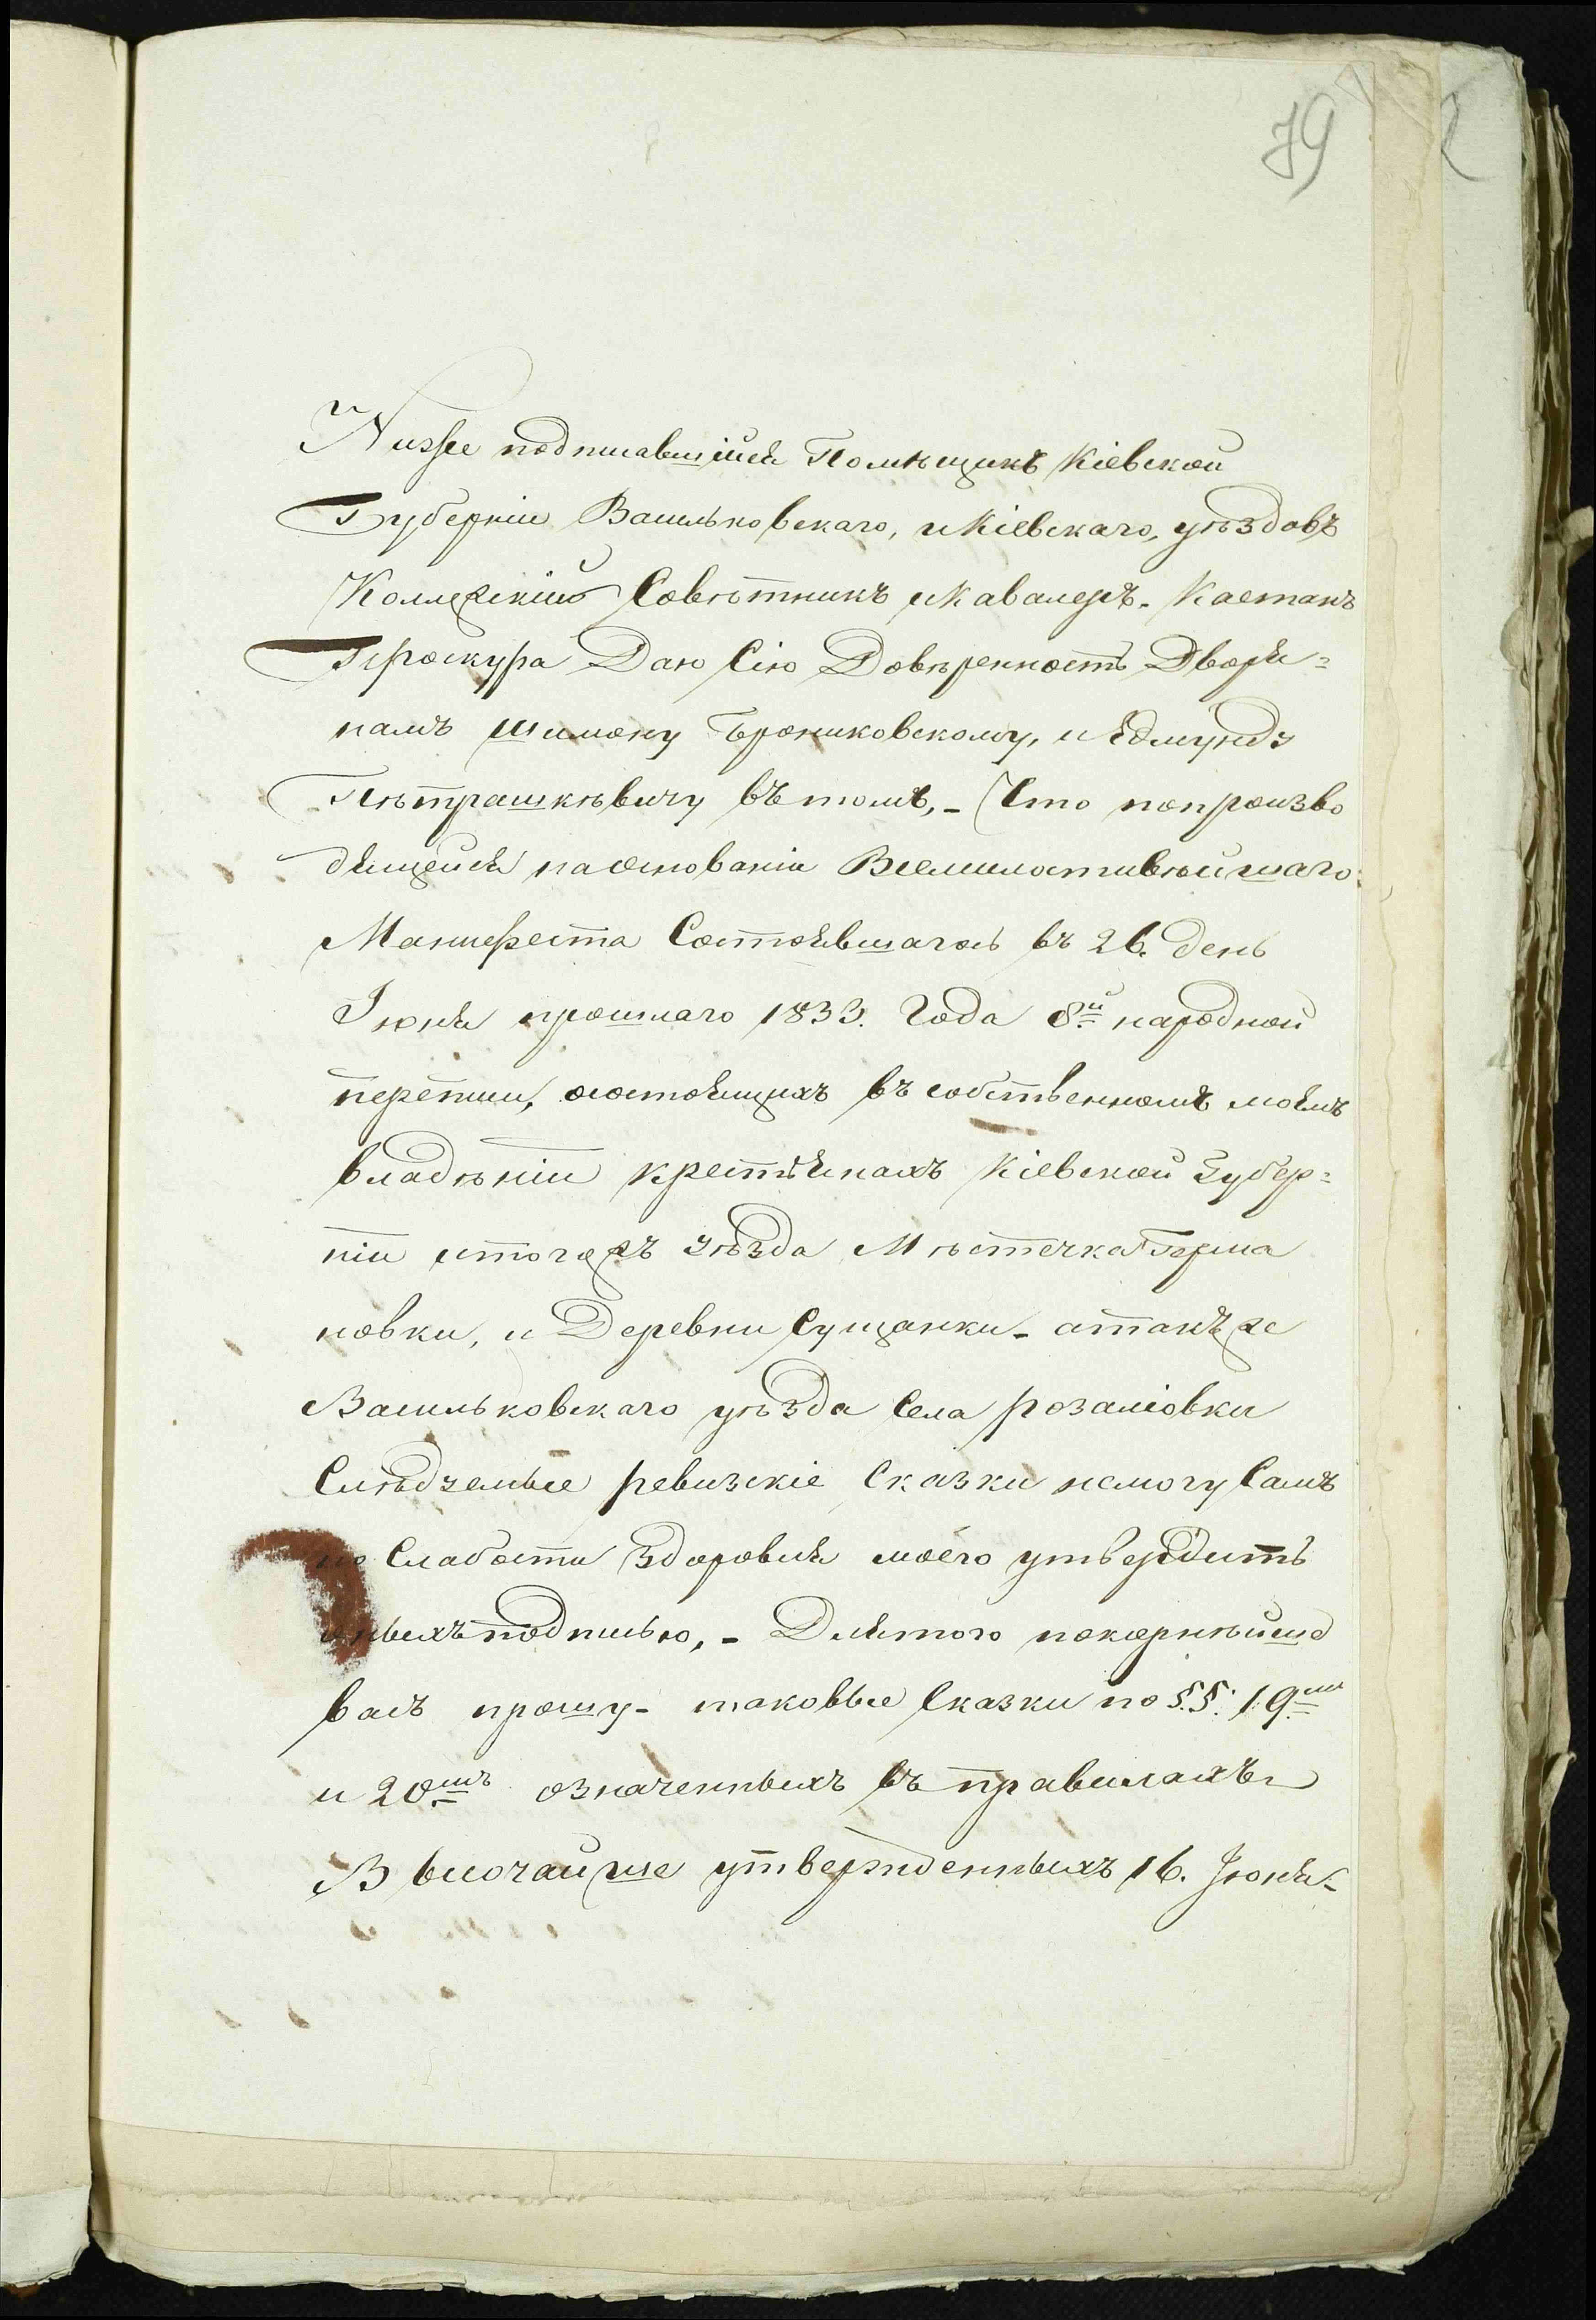 79
Ниже подписавшійся Помѣщикъ Кіевской
Губерніи Васильковскаго, и Кіевскаго, уѣздовъ
Коллежскій Совѣтникъ и Кавалеръ. Каетанъ
Проскура Даю Сію Довѣренность Дворя=
намъ Шимону Брониковскому, и Эдмунду
Пѣтрашкѣвичу въ томъ,- Что по произво
дящейся на основаніи Всемилостивѣйшаго
Манифеста Состоявшагось въ 26. день
Іюня прошлаго 1833. Года 8й народной
переписи, о состоящихъ въ собственномъ моемъ
владѣніи крестьянахъ Кіевской Губер=
ніи и тогожъ уѣзда Мѣстечка Герма
новки, и Деревни Сущанки- а такъже
Васильковскаго уѣзда Села розаліовки
Слѣдуемые ревизскіе Сказки немогу Самъ
по Слабости Здоровья моего утвердить
оныхъ подписью,- Для того покорнѣйше
васъ прошу- таковые Сказки по §§: 19мъ
и 20мъ означенныхъ въ правилахъ
Высочайше утвержденныхъ 16. Іюня-